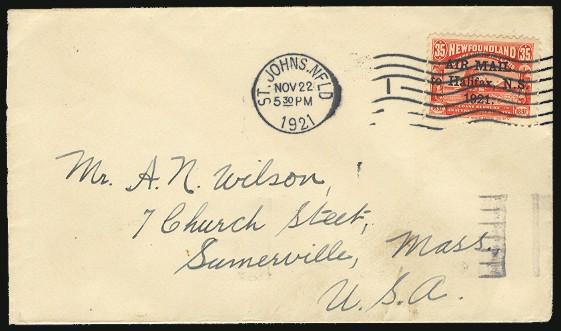 35 NEWFOUNDLAND 35
AIR MAIL
to Halifax, N.S.
1921.
ST. JOHNS. NFLD
NOV 22
5 30 PM
1921
Mr. A. N. Wilson,
7 Church Steet,
Sumerville, Mass.,
U. S. A.